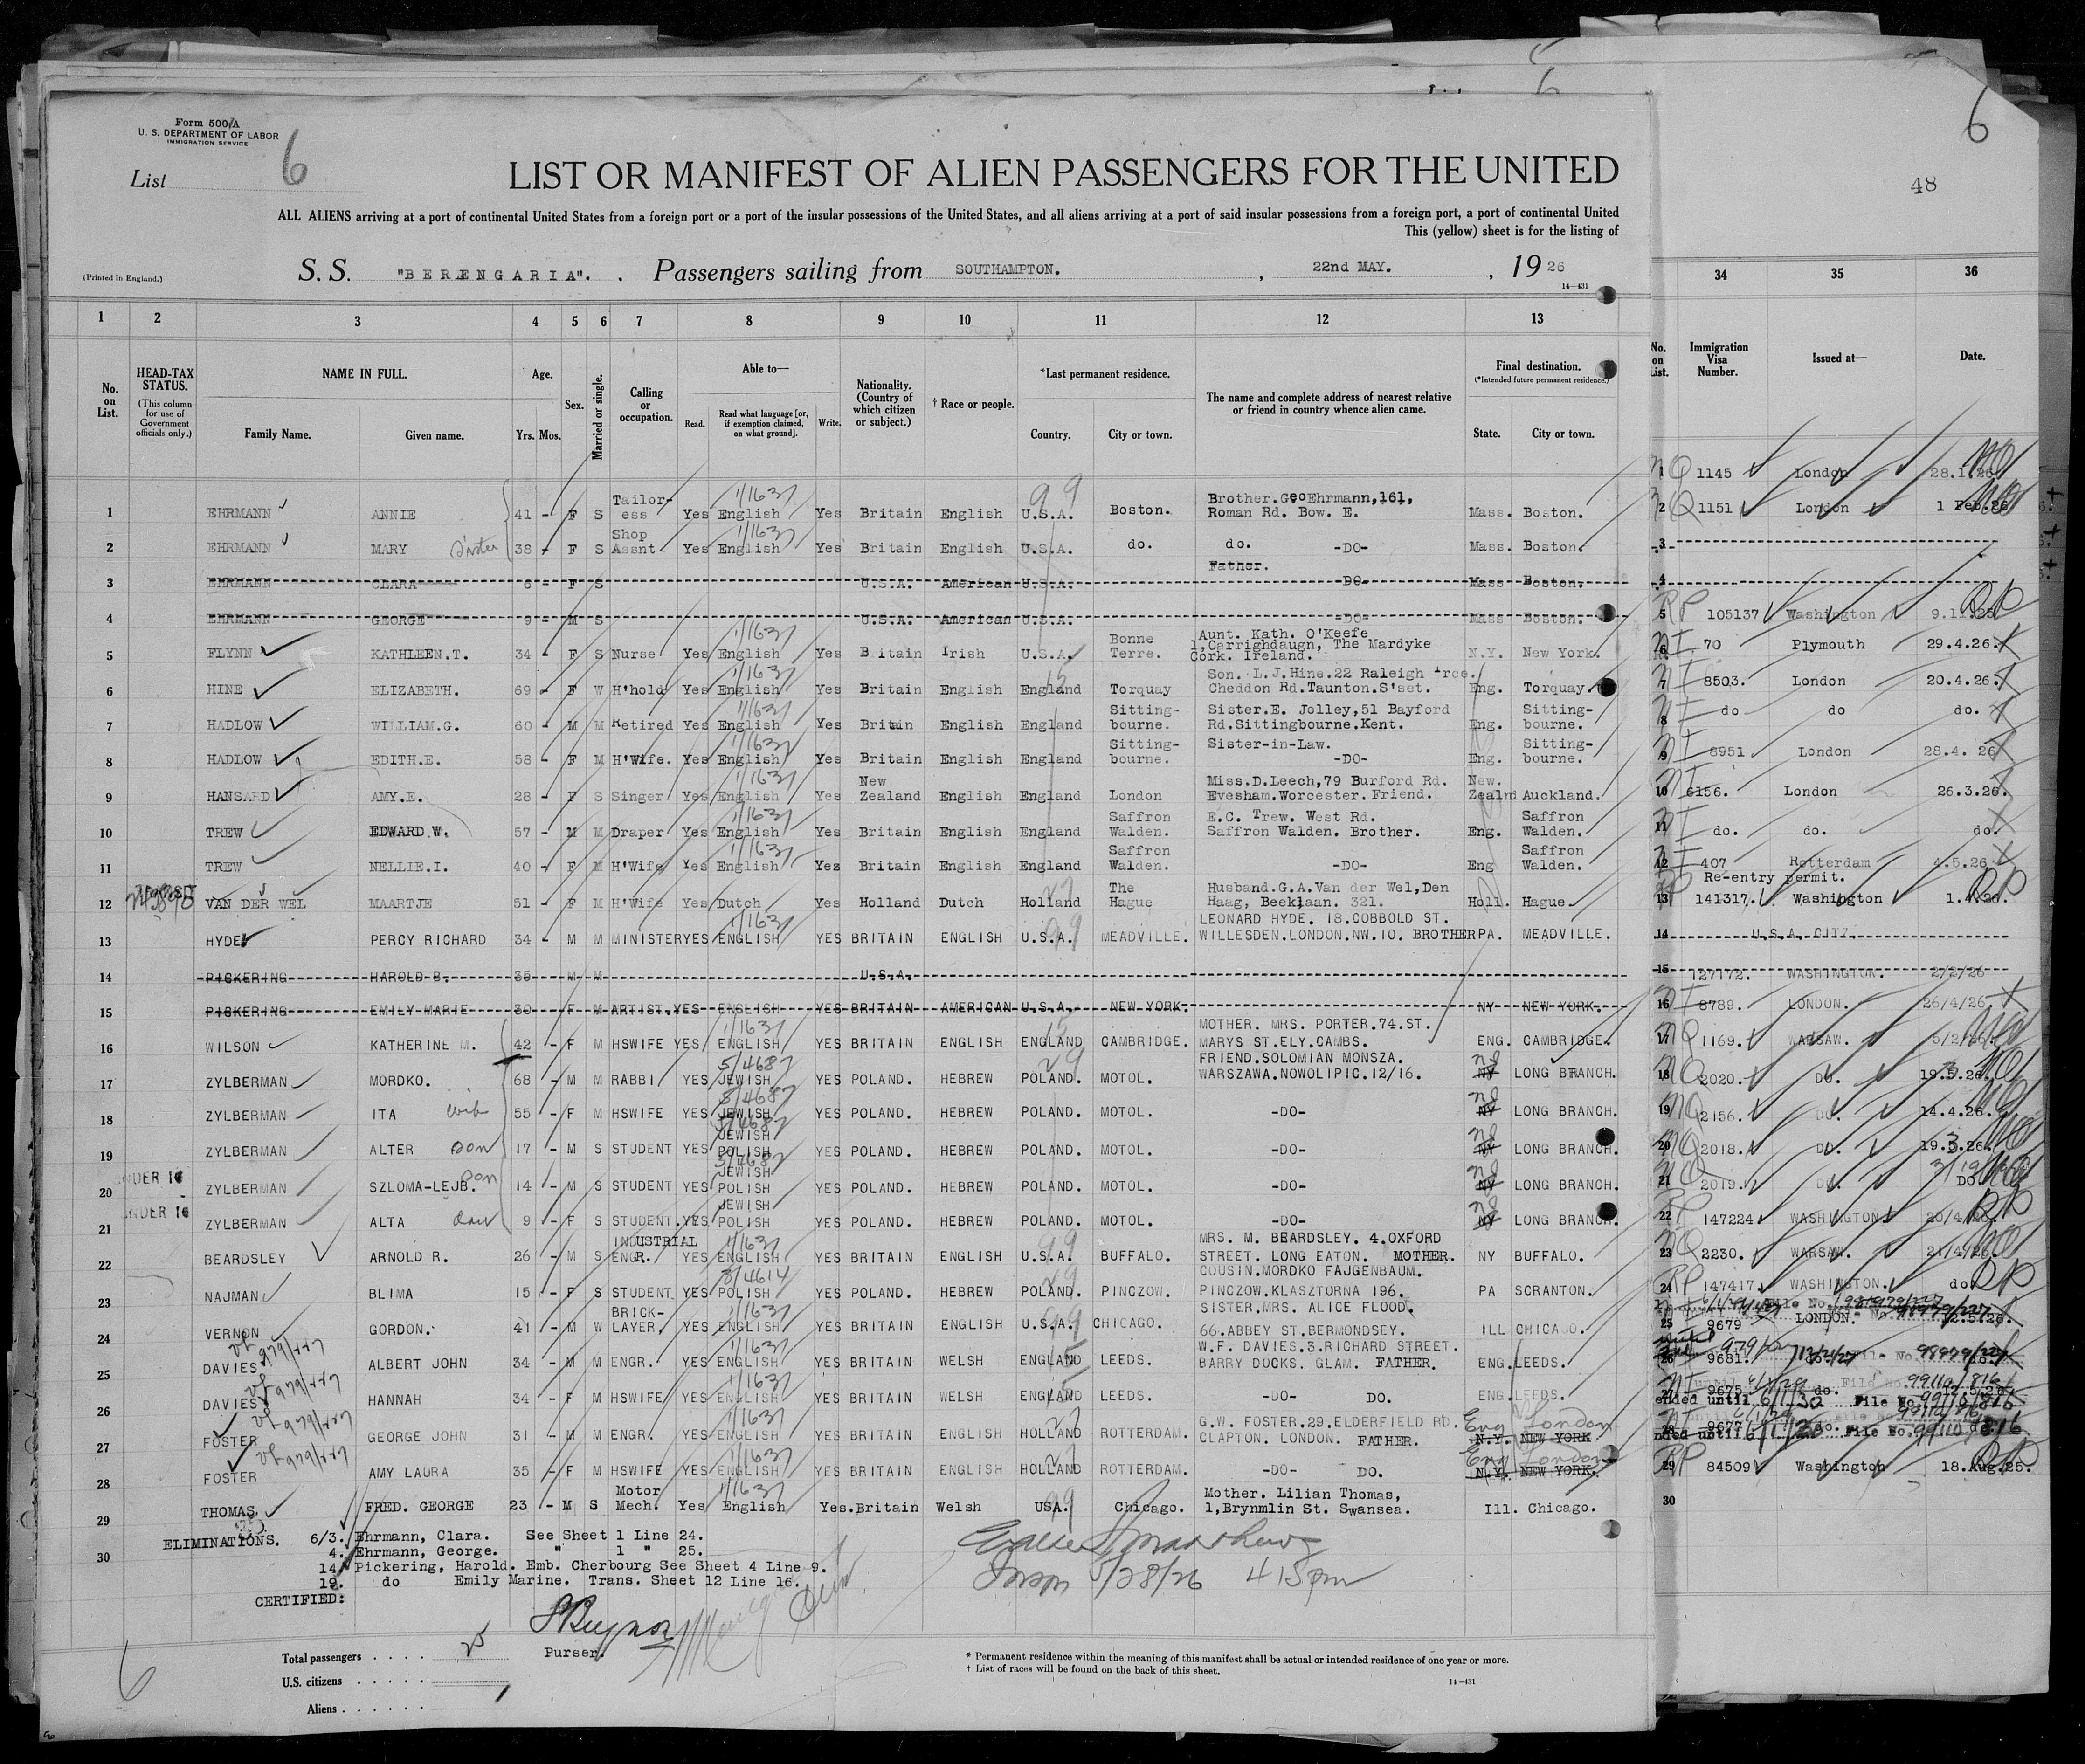 Form 500/A
U. S. DEPARTMENT OF LABOR
IMMIGRATION SERVICE
6
6
48
List 6
LIST OR MANIFEST OF ALIEN PASSENGERS FOR THE UNITED
ALL ALIENS arriving at a port of continental United States from a foreign port or a port of the insular possessions of the United States, and all aliens arriving at a port of said insular possessions from a foreign port, a port of continental United
This (yellow) sheet is for the listing of
(Printed in England.) S. S. "BERENGARIA". Passengers sailing from SOUTHAMPTON. , 22nd MAY. , 1926
14—431
1 2 3 4 5 6 7 8 9 10 11 12 13 34 35 36
No. on List. HEAD-TAX STATUS. (This column for use of Government officials only.) NAME IN FULL. Family Name. Given name. Age. Yrs. Mos. Sex. Married or single. Calling or occupation. Able to— Read. Read what language [or, if exemption claimed, on what ground]. Write. Nationality. (Country of which citizen or subject.) † Race or people. *Last permanent residence. Country. City or town. The name and complete address of nearest relative or friend in country whence alien came. Final destination. (*Intended future permanent residence.) State. City or town. No. on List. Immigration Visa Number. Issued at— Date.
1 EHRMANN ANNIE 41 - F S Tailor-ess Yes English Yes Britain English U.S.A. Boston. Brother.Geo Ehrmann,161, Roman Rd. Bow. E. Mass. Boston.
2 EHRMANN MARY Sister 38 - F S Shop Assnt Yes English Yes Britain English U.S.A. do. do. -DO- Mass. Boston.
3 EHRMANN CLARA 6 - F S U.S.A. American U.S.A. Father. -DO- Mass Boston.
4 EHRMANN GEORGE 9 - M S U.S.A. American U.S.A. -DO- Mass Boston.
5 FLYNN KATHLEEN.T. 34 - F S Nurse Yes English Yes Britain Irish U.S.A. Bonne Terre. Aunt. Kath. O'Keefe 1,Carrighdaugn, The Mardyke Cork. Ireland. N.Y. New York.
6 HINE ELIZABETH. 69 - F W H'hold Yes English Yes Britain English England Torquay Son. L.J.Hine.22 Raleigh Cheddon Rd.Taunton.S'set. Eng. Torquay.
7 HADLOW WILLIAM.G. 60 - M M Retired Yes English Yes Britain English England Sitting-bourne. Sister.E. Jolley,51 Bayford Rd.Sittingbourne.Kent. Eng. Sitting-bourne.
8 HADLOW EDITH.E. 58 - F M H'Wife. Yes English Yes Britain English England Sitting-bourne. Sister-in-Law. -DO- Eng. Sitting-bourne.
9 HANSARD AMY.E. 28 - F S Singer Yes English Yes New Zealand English England London Miss.D.Leech,79 Burford Rd. Evesham.Worcester.Friend. New. Zealnd Auckland.
10 TREW EDWARD.W. 57 - M M Draper Yes English Yes Britain English England Saffron Walden. E.C. Trew. West Rd. Saffron Walden. Brother. Eng. Saffron Walden.
11 TREW NELLIE.I. 40 - F M H'Wife Yes English Yes Britain English England Saffron Walden. -DO- Eng Saffron Walden.
12 VAN DER WEL MAARTJE 51 - F M H'Wife Yes Dutch Yes Holland Dutch Holland The Hague Husband.G.A.Van der Wel,Den Haag, Beeklaan. 321. Holl. Hague.
13 HYDE PERCY RICHARD 34 - M M MINISTER YES ENGLISH YES BRITAIN ENGLISH U.S.A. MEADVILLE. LEONARD HYDE. 18.COBBOLD ST. WILLESDEN.LONDON.NW.10. BROTHER PA. MEADVILLE.
14 PICKERING HAROLD B. 35 - M M U.S.A.
15 PICKERING EMILY MARIE 30 - F M ARTIST. YES ENGLISH YES BRITAIN AMERICAN U.S.A. NEW YORK NY NEW YORK.
16 WILSON KATHERINE M. 42 - F M HSWIFE YES ENGLISH YES BRITAIN ENGLISH ENGLAND CAMBRIDGE. MOTHER. MRS. PORTER.74.ST. MARYS ST.ELY.CAMBS. ENG. CAMBRIDGE.
17 ZYLBERMAN MORDKO. 68 - M M RABBI YES JEWISH YES POLAND. HEBREW POLAND. MOTOL. FRIEND.SOLOMIAN MONSZA. WARSZAWA.NOWOLIPIC.12/16. NY NJ LONG BRANCH.
18 ZYLBERMAN ITA wife 55 - F M HSWIFE YES JEWISH YES POLAND. HEBREW POLAND. MOTOL. -DO- NY NJ LONG BRANCH.
19 ZYLBERMAN ALTER Son 17 - M S STUDENT YES JEWISH POLISH YES POLAND. HEBREW POLAND. MOTOL. -DO- NY NJ LONG BRANCH.
20 UNDER 16 ZYLBERMAN SZLOMA-LEJB. Son 14 - M S STUDENT YES JEWISH POLISH YES POLAND. HEBREW POLAND. MOTOL. -DO- NY NJ LONG BRANCH.
21 UNDER 16 ZYLBERMAN ALTA Dau 9 - F S STUDENT. YES JEWISH POLISH YES POLAND. HEBREW POLAND. MOTOL. -DO- NY NJ LONG BRANCH.
22 BEARDSLEY ARNOLD R. 26 - M S INDUSTRIAL ENGR. YES ENGLISH YES BRITAIN ENGLISH U.S.A. BUFFALO. MRS. M. BEARDSLEY. 4.OXFORD STREET. LONG EATON. MOTHER. NY BUFFALO.
23 NAJMAN BLIMA 15 - F S STUDENT YES POLISH YES POLAND. HEBREW POLAND. PINCZOW. COUSIN.MORDKO FAJGENBAUM. PINCZOW.KLASZTORNA 196. PA SCRANTON.
24 VERNON GORDON. 41 - M W BRICK-LAYER. YES ENGLISH YES BRITAIN ENGLISH U.S.A. CHICAGO. SISTER.MRS. ALICE FLOOD. 66.ABBEY ST.BERMONDSEY. ILL CHICAGO.
25 DAVIES ALBERT JOHN 34 - M M ENGR. YES ENGLISH YES BRITAIN WELSH ENGLAND LEEDS. W.F. DAVIES.3.RICHARD STREET. BARRY DOCKS. GLAM. FATHER. ENG. LEEDS.
26 DAVIES HANNAH 34 - F M HSWIFE YES ENGLISH YES BRITAIN WELSH ENGLAND LEEDS. -DO- DO. ENG. LEEDS.
27 FOSTER GEORGE JOHN 31 - M M ENGR. YES ENGLISH YES BRITAIN ENGLISH HOLLAND ROTTERDAM. G.W. FOSTER.29.ELDERFIELD RD. CLAPTON. LONDON. FATHER. N.Y. NEW YORK Eng London
28 FOSTER AMY LAURA 35 - F M HSWIFE YES ENGLISH YES BRITAIN ENGLISH HOLLAND ROTTERDAM. -DO- DO. N.Y. NEW YORK. Eng London
29 THOMAS. FRED. GEORGE 23 - M S Motor Mech. Yes English Yes. Britain Welsh USA. Chicago. Mother. Lilian Thomas, 1,Brynmlin St. Swansea. Ill. Chicago.
30 ELIMINATIONS. 6/3. Ehrmann, Clara. See Sheet 1 Line 24.
4. Ehrmann, George. " 1 " 25.
14. Pickering, Harold. Emb. Cherbourg See Sheet 4 Line 9.
19. do Emily Marine. Trans. Sheet 12 Line 16.
CERTIFIED:
5/28/26 415 pm
Purser.
Total passengers . . . . 25
U.S. citizens . . . . .
Aliens . . . . . .
* Permanent residence within the meaning of this manifest shall be actual or intended residence of one year or more.
† List of races will be found on the back of this sheet.
14—431
6
1 1145 London 28.1.26
2 1151 London 1 Feb.26
3
4
5 RP 105137 Washington 9.1.25
6 70 Plymouth 29.4.26.
7 8503. London 20.4.26.
8 do do do.
9 8951 London 28.4. 26
10 6156. London 26.3.26.
11 do. do. do.
12 407 Rotterdam 4.5.26
Re-entry permit.
13 RP 141317. Washington 1.4.26.
14 U.S.A. CITZ.
15 127172. WASHINGTON. 2/2/26
16 8789. LONDON. 26/4/26
17 1169. WARSAW. 5/2/26
18 2020. DO. 19.3.26.
19 2156. DO. 14.4.26.
20 2018. DO. 19.3.26.
21 2019. DO. DO.
22 RP 147224 WASHINGTON 20/4/26.
23 2230. WARSAW. 21/4/26
24 RP 147417 WASHINGTON. do.
25 9679 LONDON. 12.5.26.
26 9681. do
27 9675 do. 12.5.26
28 9677 do.
29 RP 84509 Washington 18.Aug.25.
30